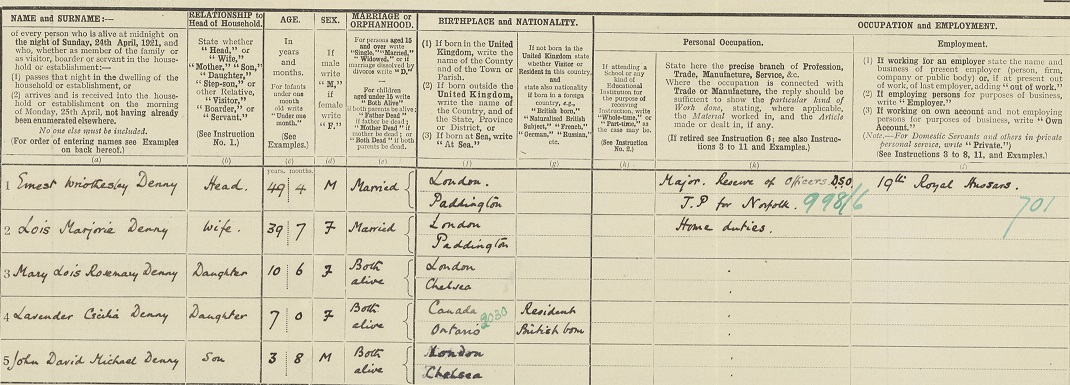 NAME and SURNAME:—
of every person who is alive at midnight on
the night of Sunday, 24th April, 1921, and
who, whether as member of the family or
as visitor, boarder or servant in the house-
hold or establishment:—
(1) passes that night in the dwelling of the
household or establishment, or
(2) arrives and is received into the house-
hold or establishment on the morning
of Monday, 25th April, not having already
been enumerated elsewhere.
No one else must be included.
(For order of entering names see Examples
on back hereof.)
(a)
RELATIONSHIP to
Head of Household.
State whether
"Head," or
"Wife,"
"Mother," "Son,"
"Daughter,"
"Step-son," or
other Relative,
"Visitor,"
"Boarder," or
"Servant."
(See Instruction
No. 1.)
(b)
AGE.
In
years
and
months.
For infants
under one
month
old write
"Under one
month."
(See
Examples.)
(c)
(d)
SEX.
If
male
write
"M,"
if
female
write
"F."
(e)
MARRIAGE or
ORPHANHOOD.
For persons aged 15
and over write
"Single," "Married,"
"Widowed," or if
marriage dissolved by
divorce write "D."
For children
aged under 15 write
"Both Alive"
if both parents be alive;
"Father Dead"
if father be dead;
"Mother Dead" if
mother be dead; or
"Both Dead" if both
parents be dead.
BIRTHPLACE and NATIONALITY.
(1) If born in the United
Kingdom, write the
name of the County
and of the Town or
Parish.
(2) If born outside the
United Kingdom,
write the name of
the Country, and of
the State, Province
or District, or
(3) If born at Sea, write
"At Sea."
(f)
If not born in the
United Kingdom
state whether
Visitor or
Resident in this country,
and
state also nationality
if born in a foreign
country, e.g.,
"Naturalised British
Subject," "French,"
"German," "Russian,"
etc.
(g)
If attending a
School or any
kind of
Educational
Institution for
the purpose of
receiving
Instruction, write
"Whole-time," or
"Part-time," as
the case may be.
(See Instruction
No. 2.)
(h)
OCCUPATION and EMPLOYMENT.
Personal Occupation.
State here the precise branch of Profession,
Trade, Manufacture, Service, &c.
Where the occupation is connected with
Trade or Manufacture, the reply should be
sufficient to show the particular kind of
Work done, stating, where applicable,
the Material worked in, and the Article
made or dealt in, if any.
(If retired see Instruction 6; see also Instruc-
tions 3 to 11 and Examples.)
(k)
Employment.
(1) If working for an employer state the name and
business of present employer (person, firm,
company or public body) or, if at present out
of work, of last employer, adding "out of work."
(2) If employing persons for purposes of business,
write "Employer."
(3) If working on own account and not employing
persons for purposes of business, write "Own
Account."
(Note.—For Domestic Servants and others in private
personal service, write "Private.")
(See Instructions 3 to 8, 11, and Examples.)
(l)
years. months.
1 Ernest Wriothesley Denny Head. 49 4 M Married London. Major. Reserve of Officers. DSO. 19th Royal Hussars.
Paddington J.P for Norfolk. 998/6 701
2 Lois Marjorie Denny Wife. 39 7 F Married London Home duties.
Paddington
3 Mary Lois Rosemary Denny Daughter 10 6 F Both London
alive Chelsea
4 Lavender Cecilia Denny Daughter 7 0 F Both Canada Resident
alive Ontario 2030 British born
5 John David Michael Denny Son 3 8 M Both London
alive Chelsea